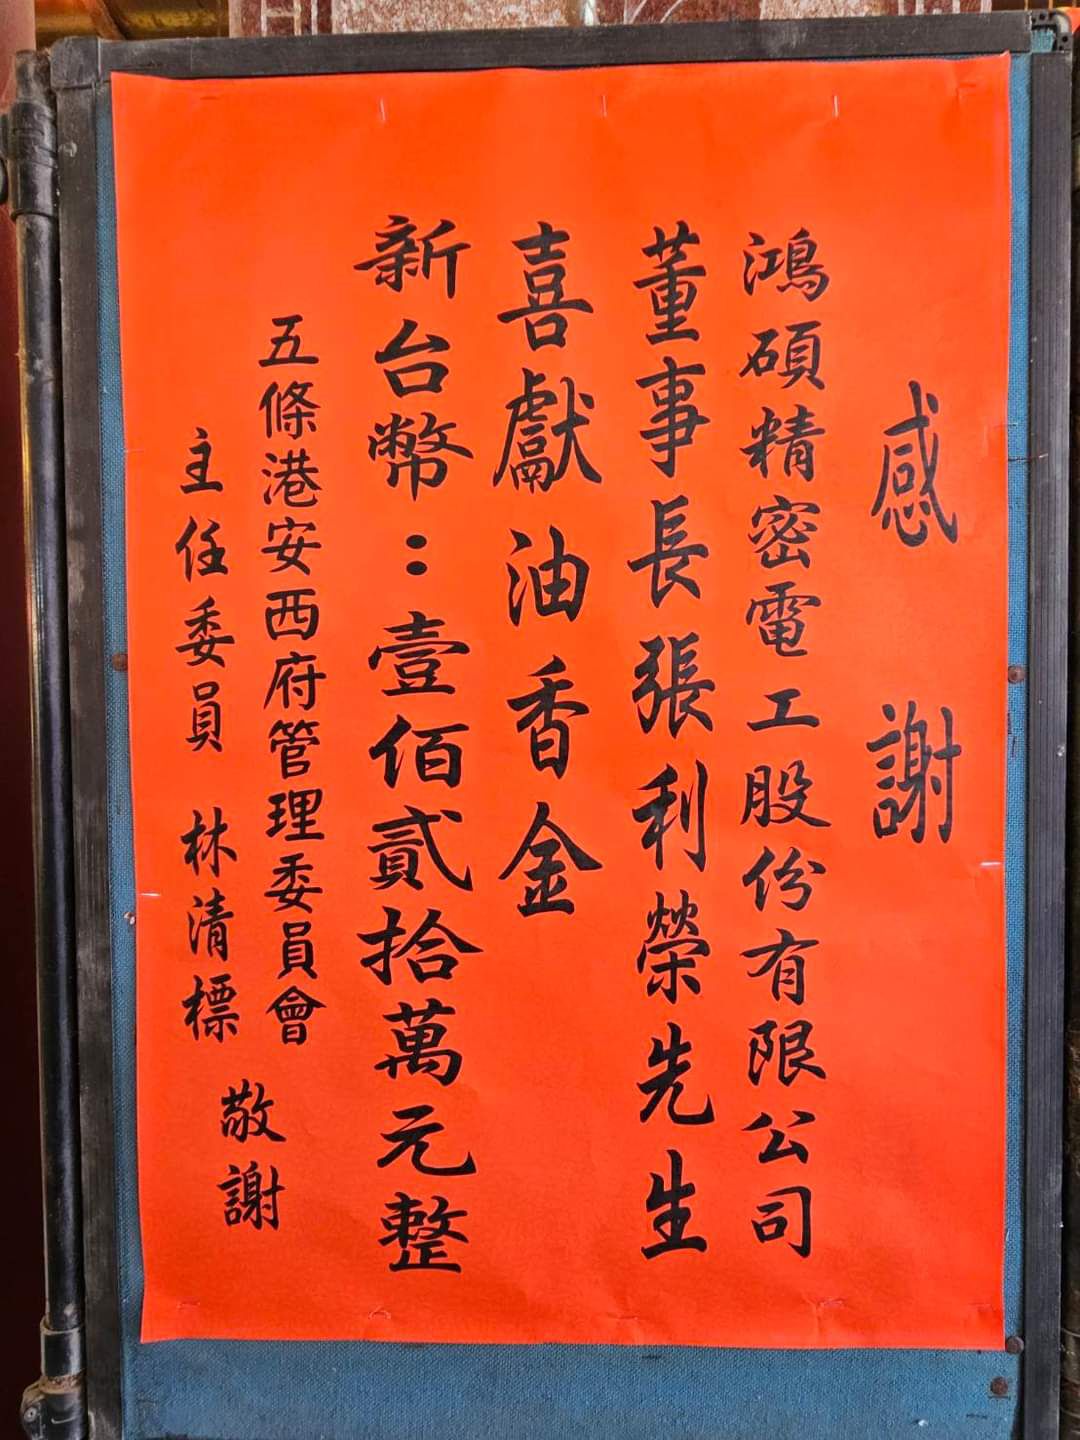 感謝
鴻碩精密電工股份有限公司
董事長張利榮先生
喜獻油香金
新台幣：壹佰貳拾萬元整
五條港安西府管理委員會
主任委員 林清標
敬謝